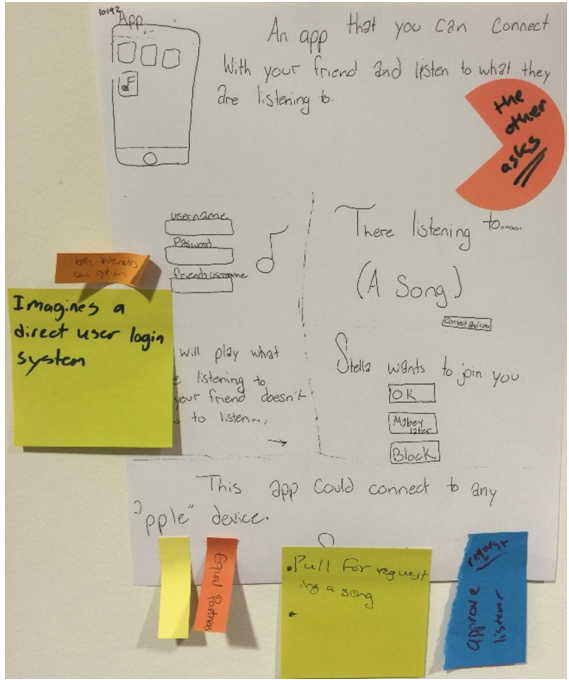 10192
App
An app that you can connect
With your friend and listen to what they
are listening to.
F
the
other
asks
username
Pasword
friends username
There listening to.....
(A Song)
Imagines a
direct user login
system
will play what
listening to
your friend doesn't
to listen...
Stella wants to join you
OK
Mabey
later
Block
This app could connect to any
"pple" device.
Equal Partners
.Pull for request
ing a song
request
approve
listener